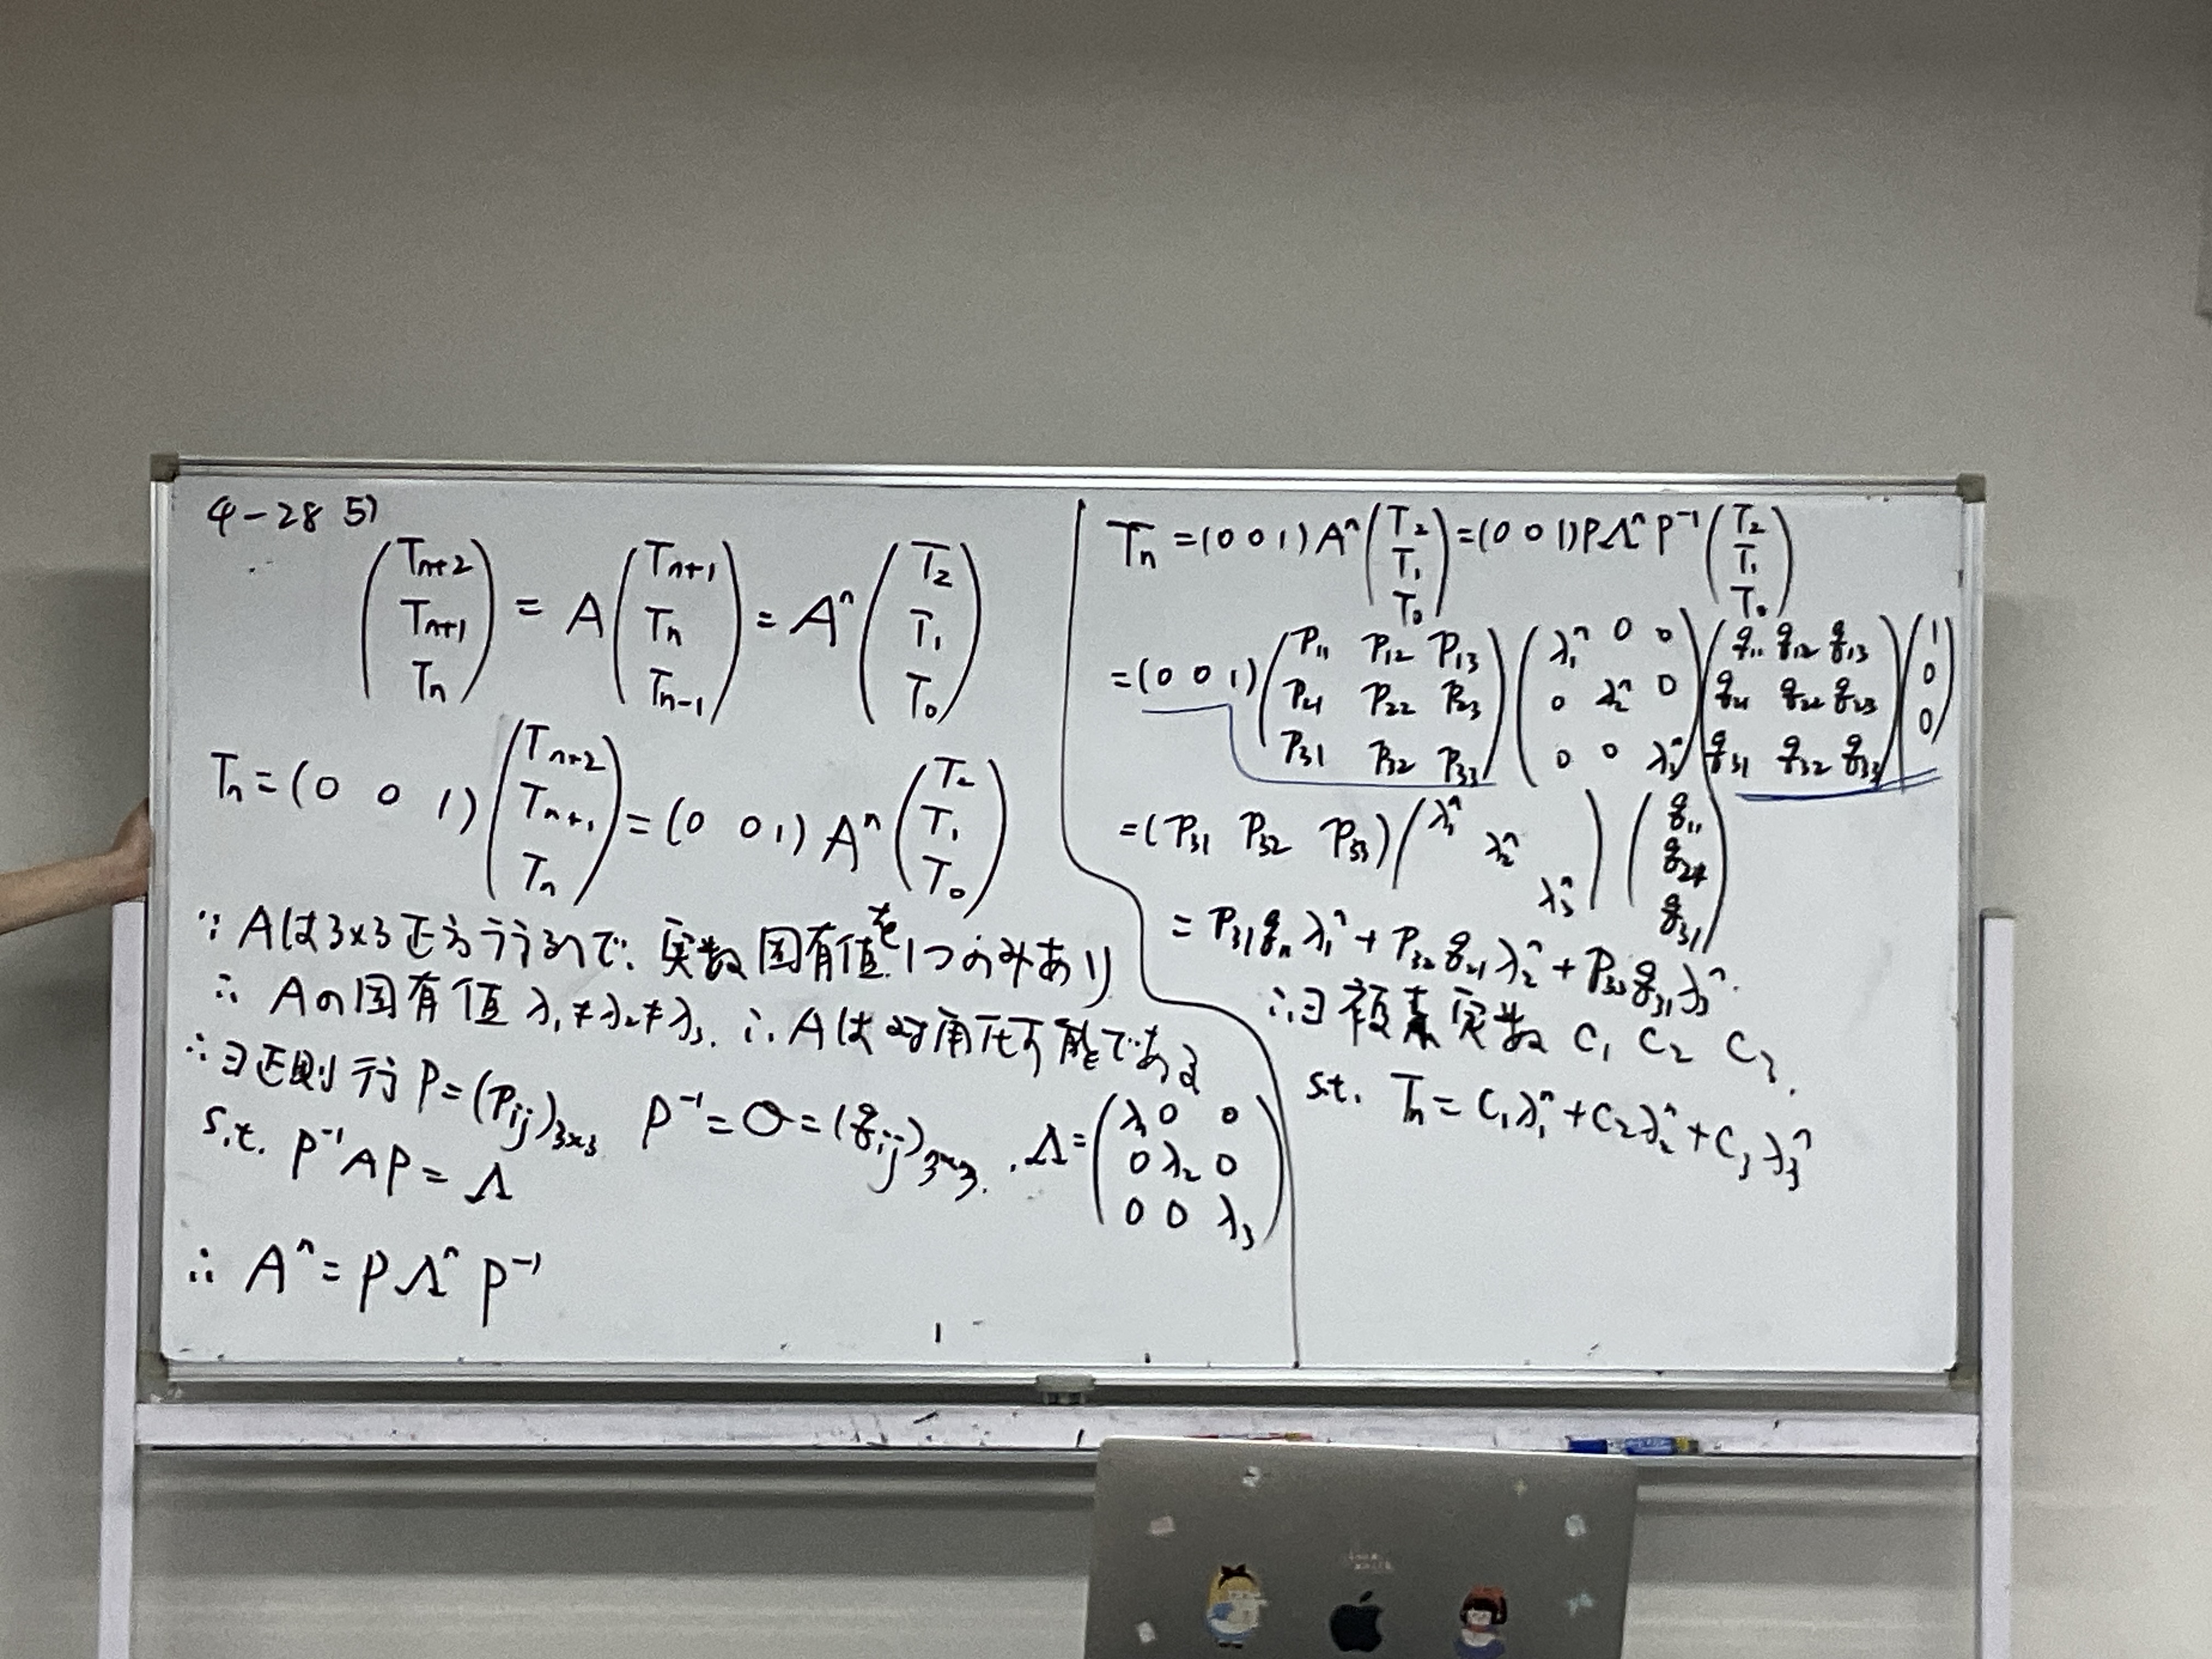 4-28 5)
(T_{n+2} T_{n+1} T_n) = A (T_{n+1} T_n T_{n-1}) = A^n (T_2 T_1 T_0)
T_n = (0 0 1) (T_{n+2} T_{n+1} T_n) = (0 0 1) A^n (T_2 T_1 T_0)
∵ Aは3×3正方行列で、実数固有値を1つのみあり
∴ Aの固有値 λ_1≠λ_2≠λ_3. ∴ Aは対角化可能である
∴ ∃正則行 P=(P_{ij})_{3×3} P^{-1}=Q=(q_{ij})_{3×3}. Λ=(λ_1 0 0 0 λ_2 0 0 0 λ_3)
s.t. P^{-1}AP = Λ
∴ A^n = PΛ^n P^{-1}
T_n = (0 0 1) A^n (T_2 T_1 T_0) = (0 0 1) PΛ^n P^{-1} (T_2 T_1 T_0)
= (0 0 1) (P_{11} P_{12} P_{13} P_{21} P_{22} P_{23} P_{31} P_{32} P_{33}) (λ_1^n 0 0 0 λ_2^n 0 0 0 λ_3^n) (q_{11} q_{12} q_{13} q_{21} q_{22} q_{23} q_{31} q_{32} q_{33}) (1 0 0)
= (P_{31} P_{32} P_{33}) (λ_1^n λ_2^n λ_3^n) (q_{11} q_{21} q_{31})
= P_{31}q_{11}λ_1^n + P_{32}q_{21}λ_2^n + P_{33}q_{31}λ_3^n.
∴ ∃ 素実数 C_1 C_2 C_3.
s.t. T_n = C_1λ_1^n + C_2λ_2^n + C_3λ_3^n